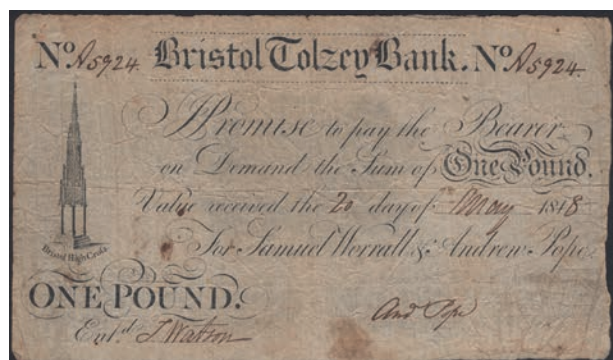 No A5924. Bristol Tolzey Bank. No A5924.
I Promise to pay the Bearer
on Demand the Sum of One Pound.
Value received the 20 day of May 1818
For Samuel Worrall & Andrew Pope
Bristol High Cross
ONE POUND.
And Pope
Entd. J Watson